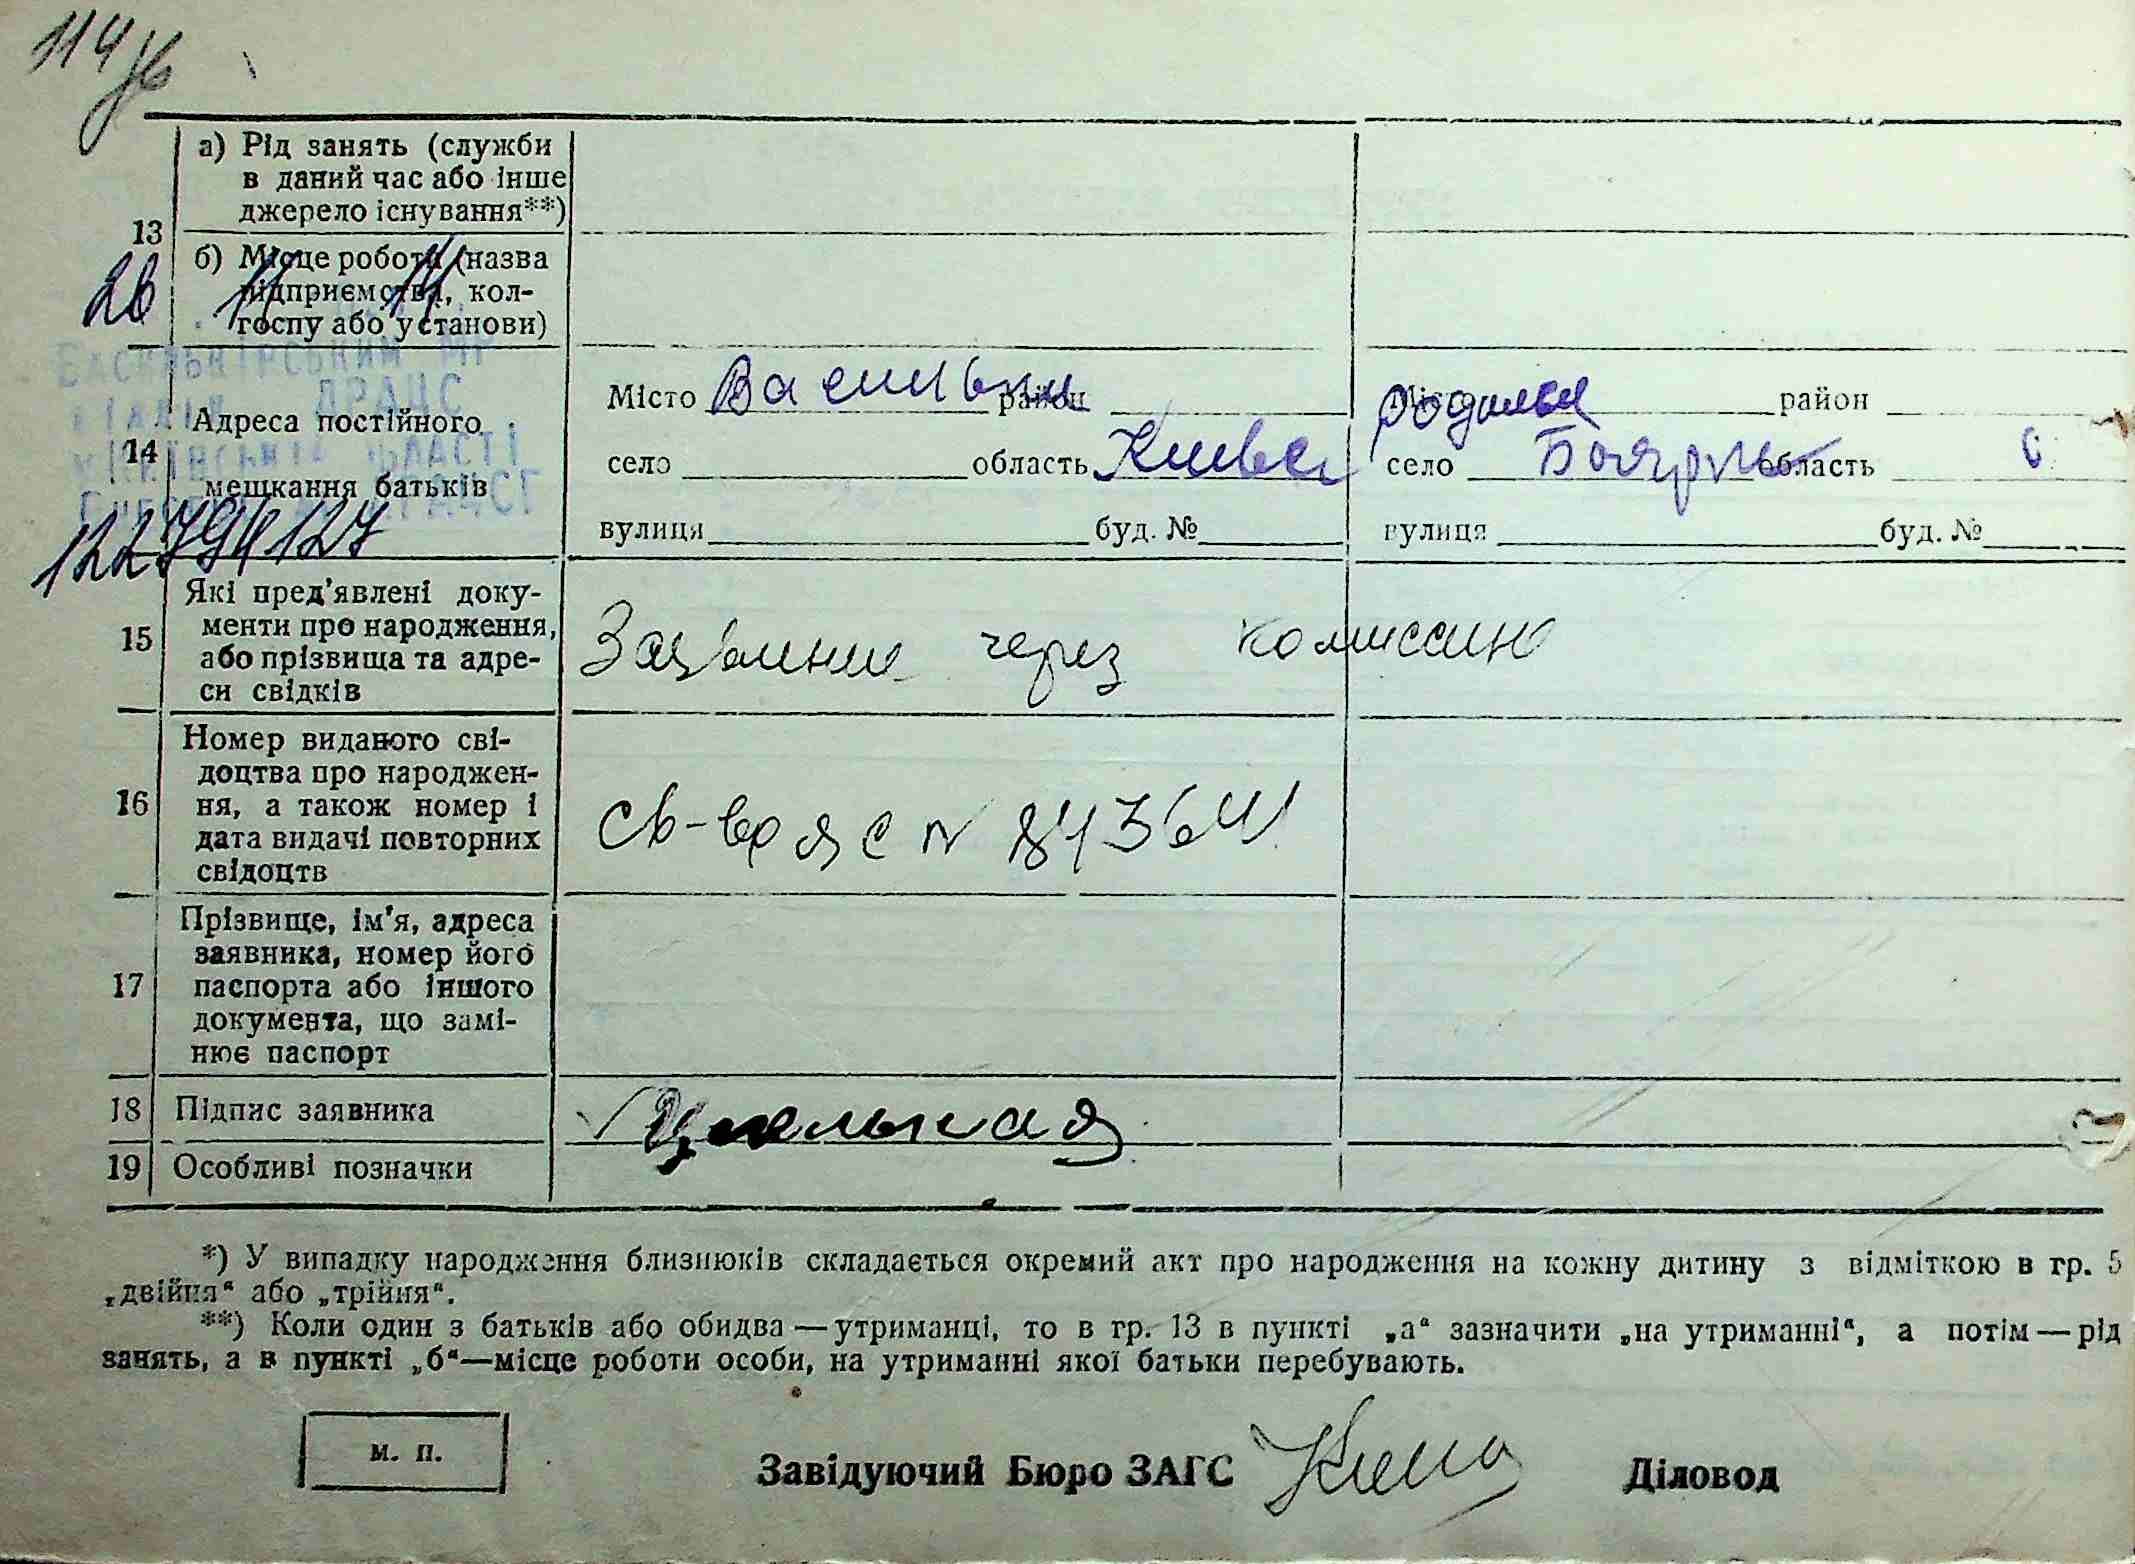 114
13
а) Рід занять (служби
в даний час або інше
джерело існування**)
б) Місце роботи (назва
підприємства, кол-
госпу або установи)
26 11 14
14
Адреса постійного
мешкання батьків
Місто Васильків район
село область Киевс
вулиця буд. №
Місто район
село Боярка область
вулиця буд. №
ДРАЦС
122794127
15
Які пред'явлені доку-
менти про народження,
або прізвища та адре-
си свідків
через комиссию
16
Номер виданого сві-
доцтва про народжен-
ня, а також номер і
дата видачі повторних
свідоцтв
св-во яс №
17
Прізвище, ім'я, адреса
заявника, номер його
паспорта або іншого
документа, що замі-
нює паспорт
18 Підпис заявника
19 Особливі позначки
*) У випадку народження близнюків складається окремий акт про народження на кожну дитину з відміткою в гр. 5
„двійня“ або „трійня“.
**) Коли один з батьків або обидва—утриманці, то в гр. 13 в пункті „а“ зазначити „на утриманні“, а потім—рід
занять, а в пункті „б“—місце роботи особи, на утриманні якої батьки перебувають.
м. п.
Завідуючий Бюро ЗАГС Діловод